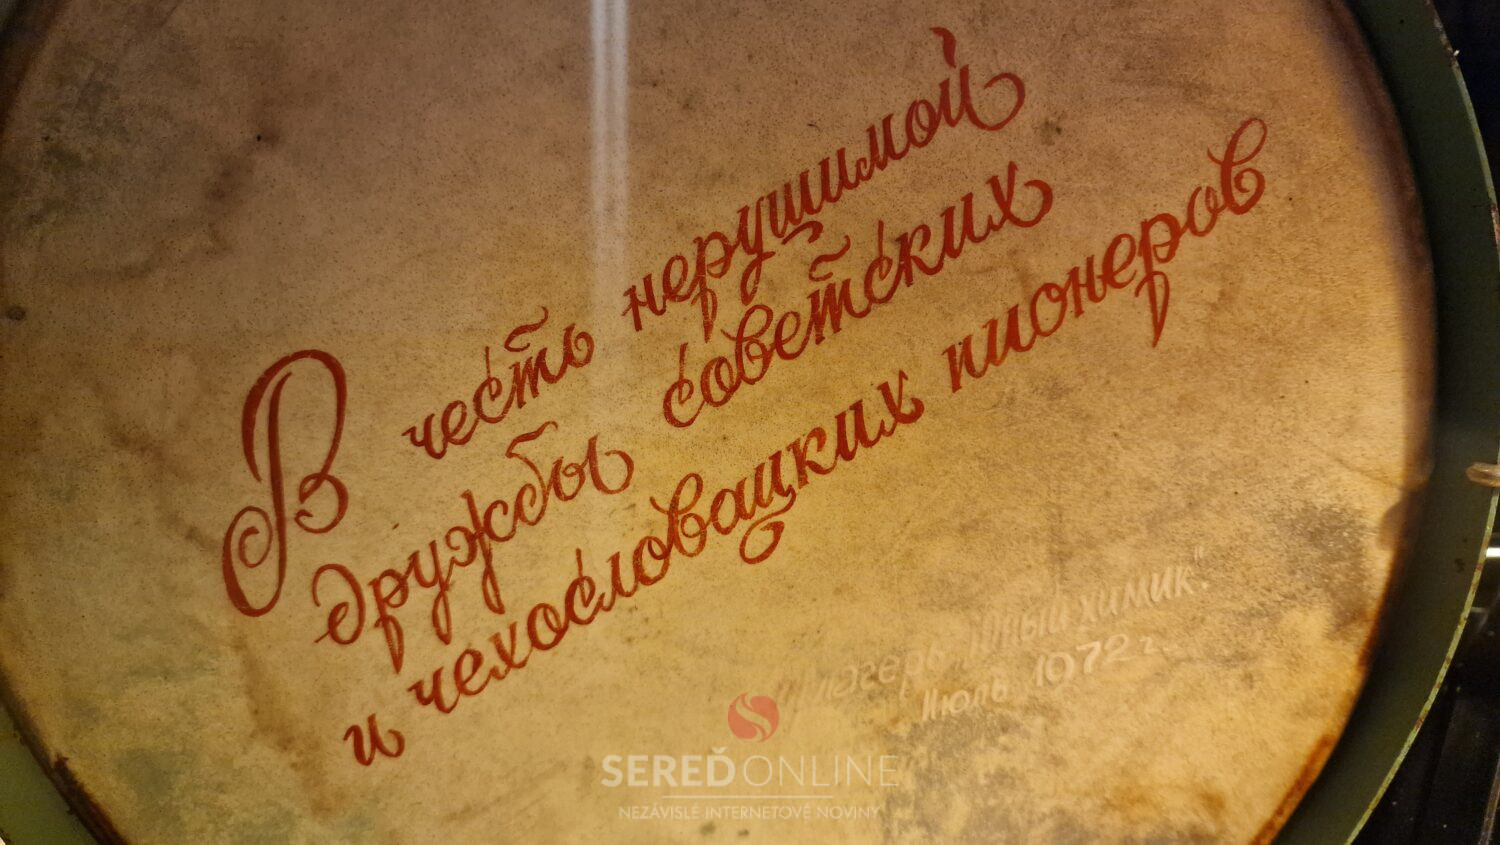 В честь нерушимой
дружбы советских
и чехословацких пионеров
п/лагерь „Юный химик".
Июль 1972 г.
SEREĎONLINE
NEZÁVISLÉ INTERNETOVÉ NOVINY